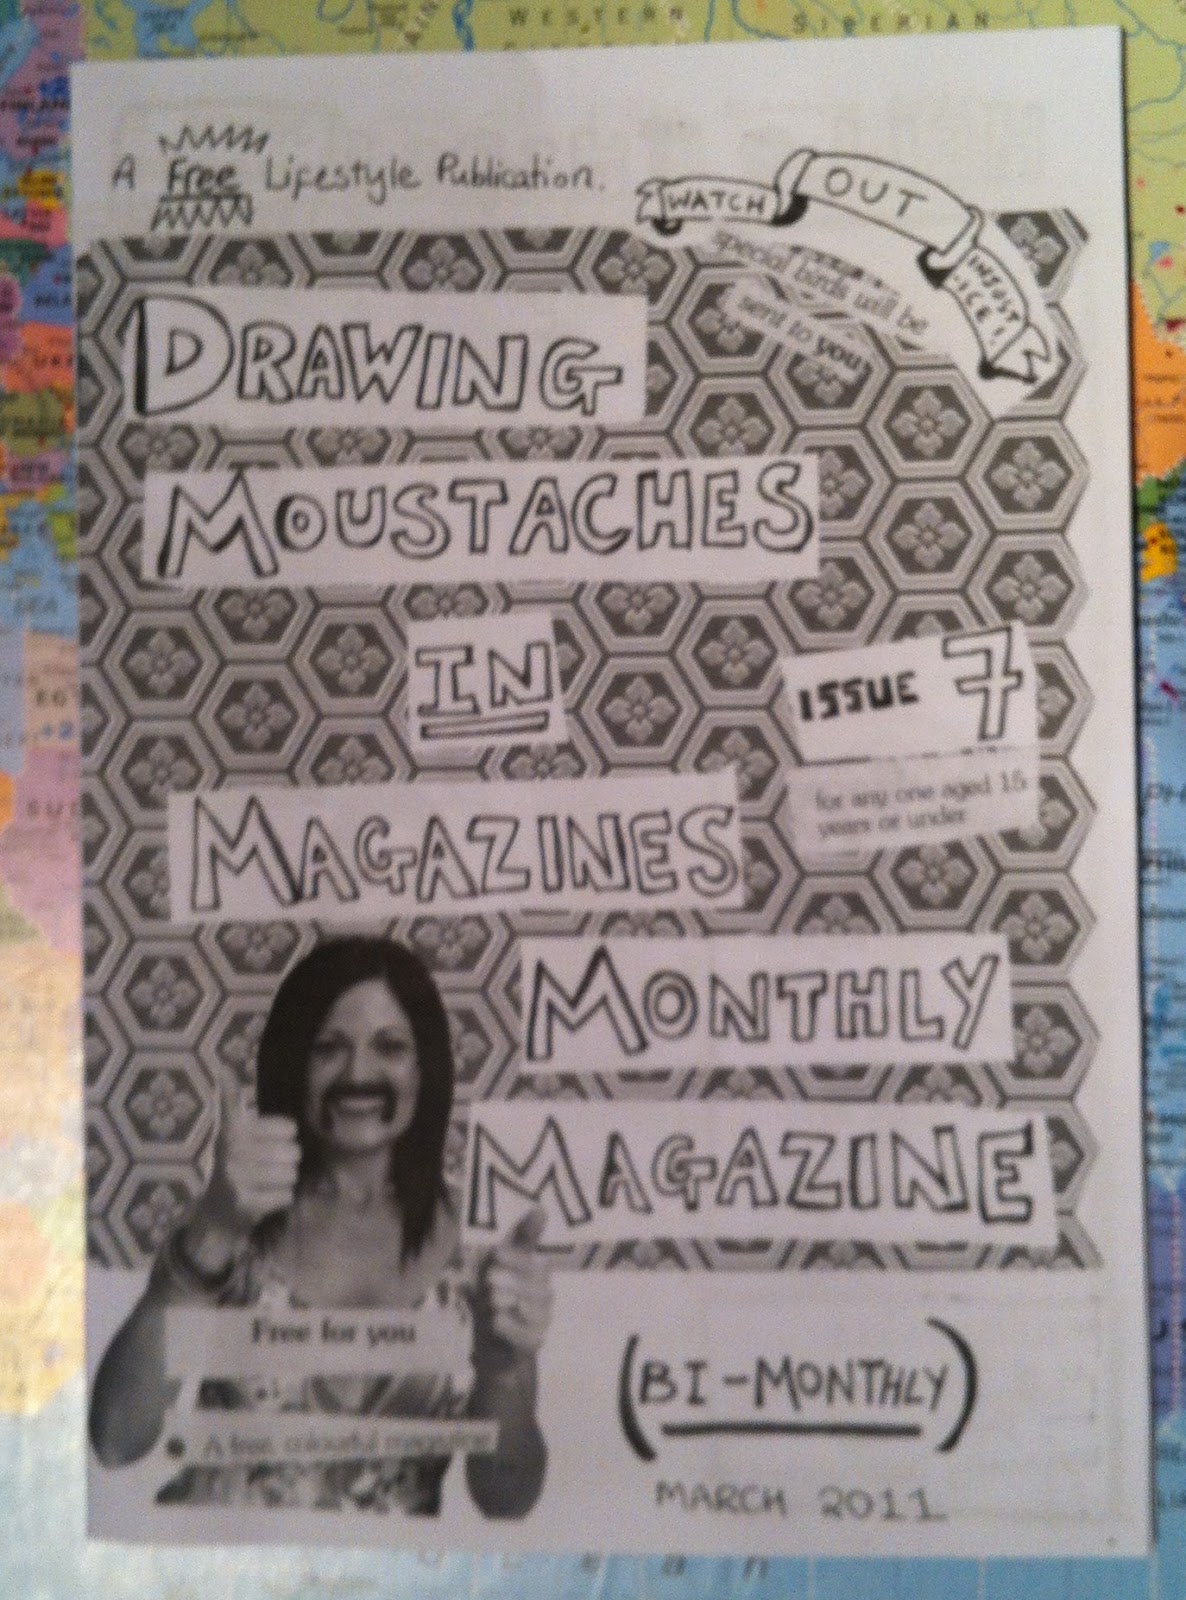 WESTERN SIBERIAN
A Free Lifestyle Publication.
WATCH OUT INJUST-ICE!
special birds will be
sent to you
DRAWING
MOUSTACHES
IN
ISSUE 7
for any one aged 15
years or under
MAGAZINES
MONTHLY
MAGAZINE
Free for you
• A free, colourful magazine
(BI-MONTHLY)
MARCH 2011